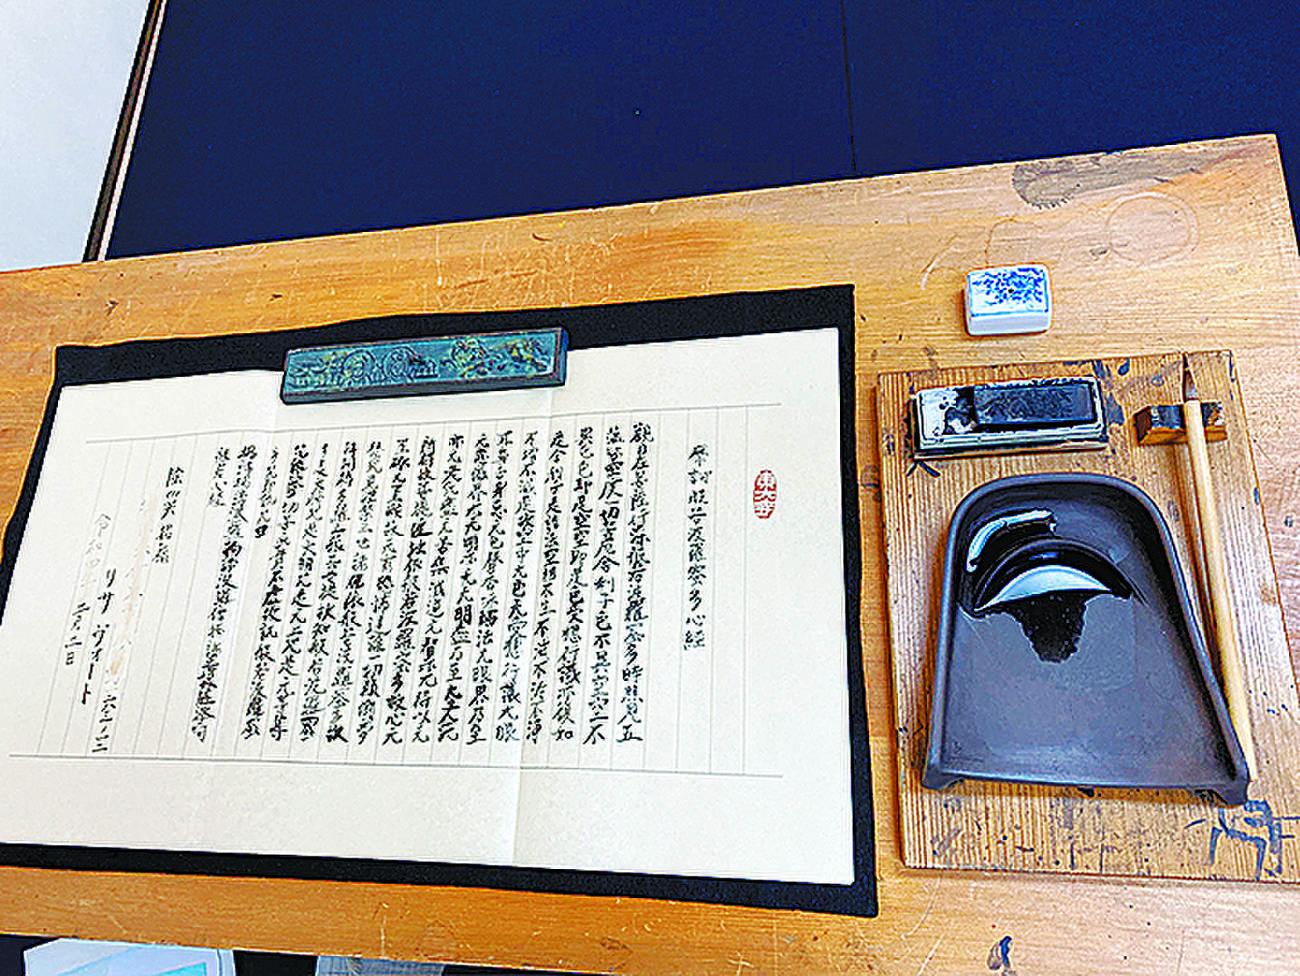 東大寺
摩訶般若波羅蜜多心經
観自在菩薩行深般若波羅蜜多時照見五
蘊皆空度一切苦厄舎利子色不異空空不
異色色即是空空即是色受想行識亦復如
是舎利子是諸法空相不生不滅不垢不浄
不増不減是故空中无色无受想行識无眼
耳鼻舌身意无色聲香味觸法无眼界乃至
无意識界无无明亦无无明盡乃至无老死
亦无老死盡无苦集滅道无智亦无得以无
所得故菩提薩埵依般若波羅蜜多故心无
罣礙无罣礙故无有恐怖遠離一切顛倒夢
想究竟涅槃三世諸佛依般若波羅蜜多故
得阿耨多羅三藐三菩提故知般若波羅蜜
多是大神呪是大明呪是无上呪是无等等
呪能除一切苦真實不虚故説般若波羅蜜
多呪即説呪曰
羯諦羯諦波羅羯諦波羅僧羯諦菩提薩婆訶
般若心経
除災招福
リサ ヴォート
令和四年 二月二日